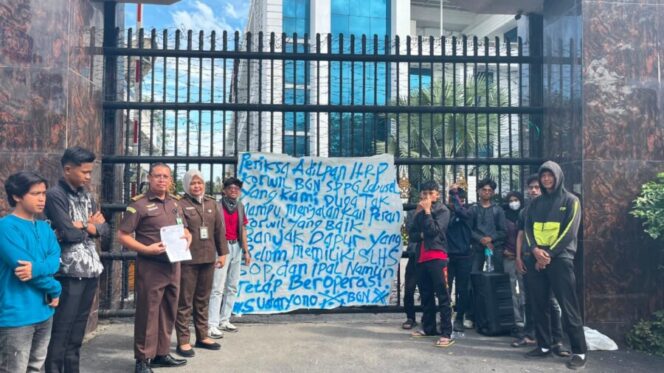 Periksa Adlpan H.R.P
Korwil BGN SPPG Labusel
yang Diduga Tak
Mampu Menjalankan Peran
Korwil yang Baik
Banyak Dapur yang
Belum Memiliki SLHS
SOP dan ipal Namun
Tetap Beroperasi
#Sudaryono BGN